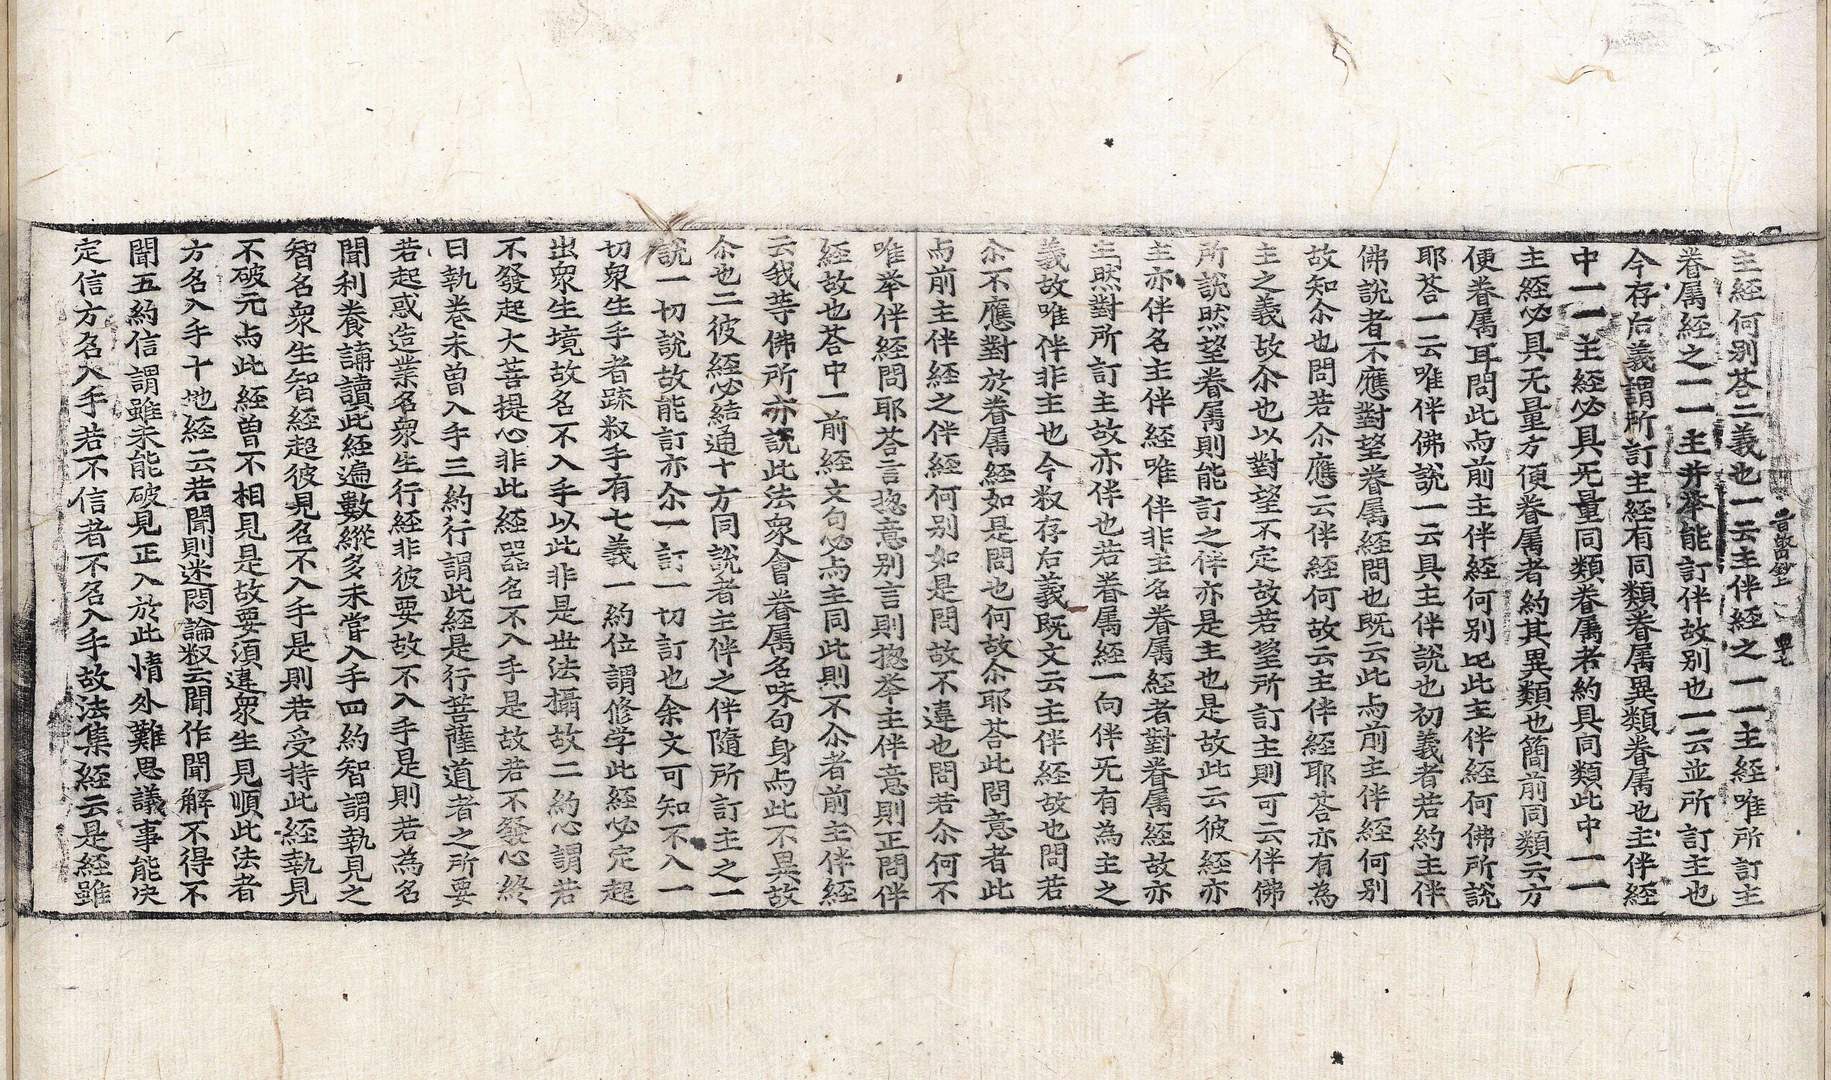 主經何别荅二義也一云主伴經之一一主經唯所訂主
眷属經之一一主并举能訂伴故别也一云並所訂主也
今存后義謂所訂主經有同類眷属異類眷属也主伴經
中一一主經必具无量同類眷属者約具同類此中一一
主經必具无量方便眷属者約其異類也簡前同類云方
便眷属耳問此与前主伴經何别此主伴經何佛所說
耶荅一云唯伴佛說一云具主伴說也初義者若約主伴
佛說者不應對望眷属經問也既云此与前主伴經何别
故知尒也問若尒應云伴經何故云主伴經耶荅亦有為
主之義故尒也以對望不定故若望所訂主則可云伴佛
所說然望眷属則能訂之伴亦是主也是故此云彼經亦
主亦伴名主伴經唯伴非主名眷属經者對眷属經故亦
主然對所訂主故亦伴也若眷属經一向伴无有為主之
義故唯伴非主也今叙存后義既文云主伴經故也問若
尒不應對於眷属經如是問也何故尒耶荅此問意者此
与前主伴經之伴經何别如是問故不違也問若尒何不
唯举伴經問耶荅言揔意别言則揔举主伴意則正問伴
經故也荅中一前經文句必与主同此則不尒者前主伴經
云我等佛所亦說此法衆會眷属名味句身与此不異故
尒也二彼經必結通十方同說者主伴之伴隨所訂主之一
說一切說故能訂亦尒一訂一切訂也余文可知不入一
切衆生手者䟽叙手有七義一約位謂修学此經必定起
出衆生境故名不入手以此非是世法攝故二約心謂若
不發起大菩提心非此經器名不入手是故若不發心終
日執卷未曾入手三約行謂此經是行菩薩道者之所要
若起惑造業名衆生行經非彼要故不入手是則若為名
聞利養誦讀此經遍數縱多未甞入手四約智謂執見之
智名衆生智經超彼見名不入手是則若受持此經執見
不破元与此經曽不相見是故要湏違衆生見順此法者
方名入手十地經云若聞則迷悶論叙云聞作聞解不得不
聞五約信謂雖未能破見正入於此情外難思議事能决
定信方名入手若不信者不名入手故法集經云是經雖